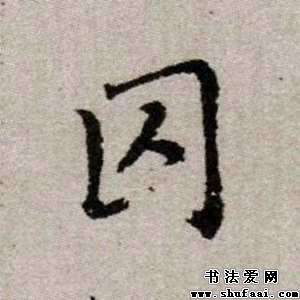 囚
书法爱网
www.shufaai.com